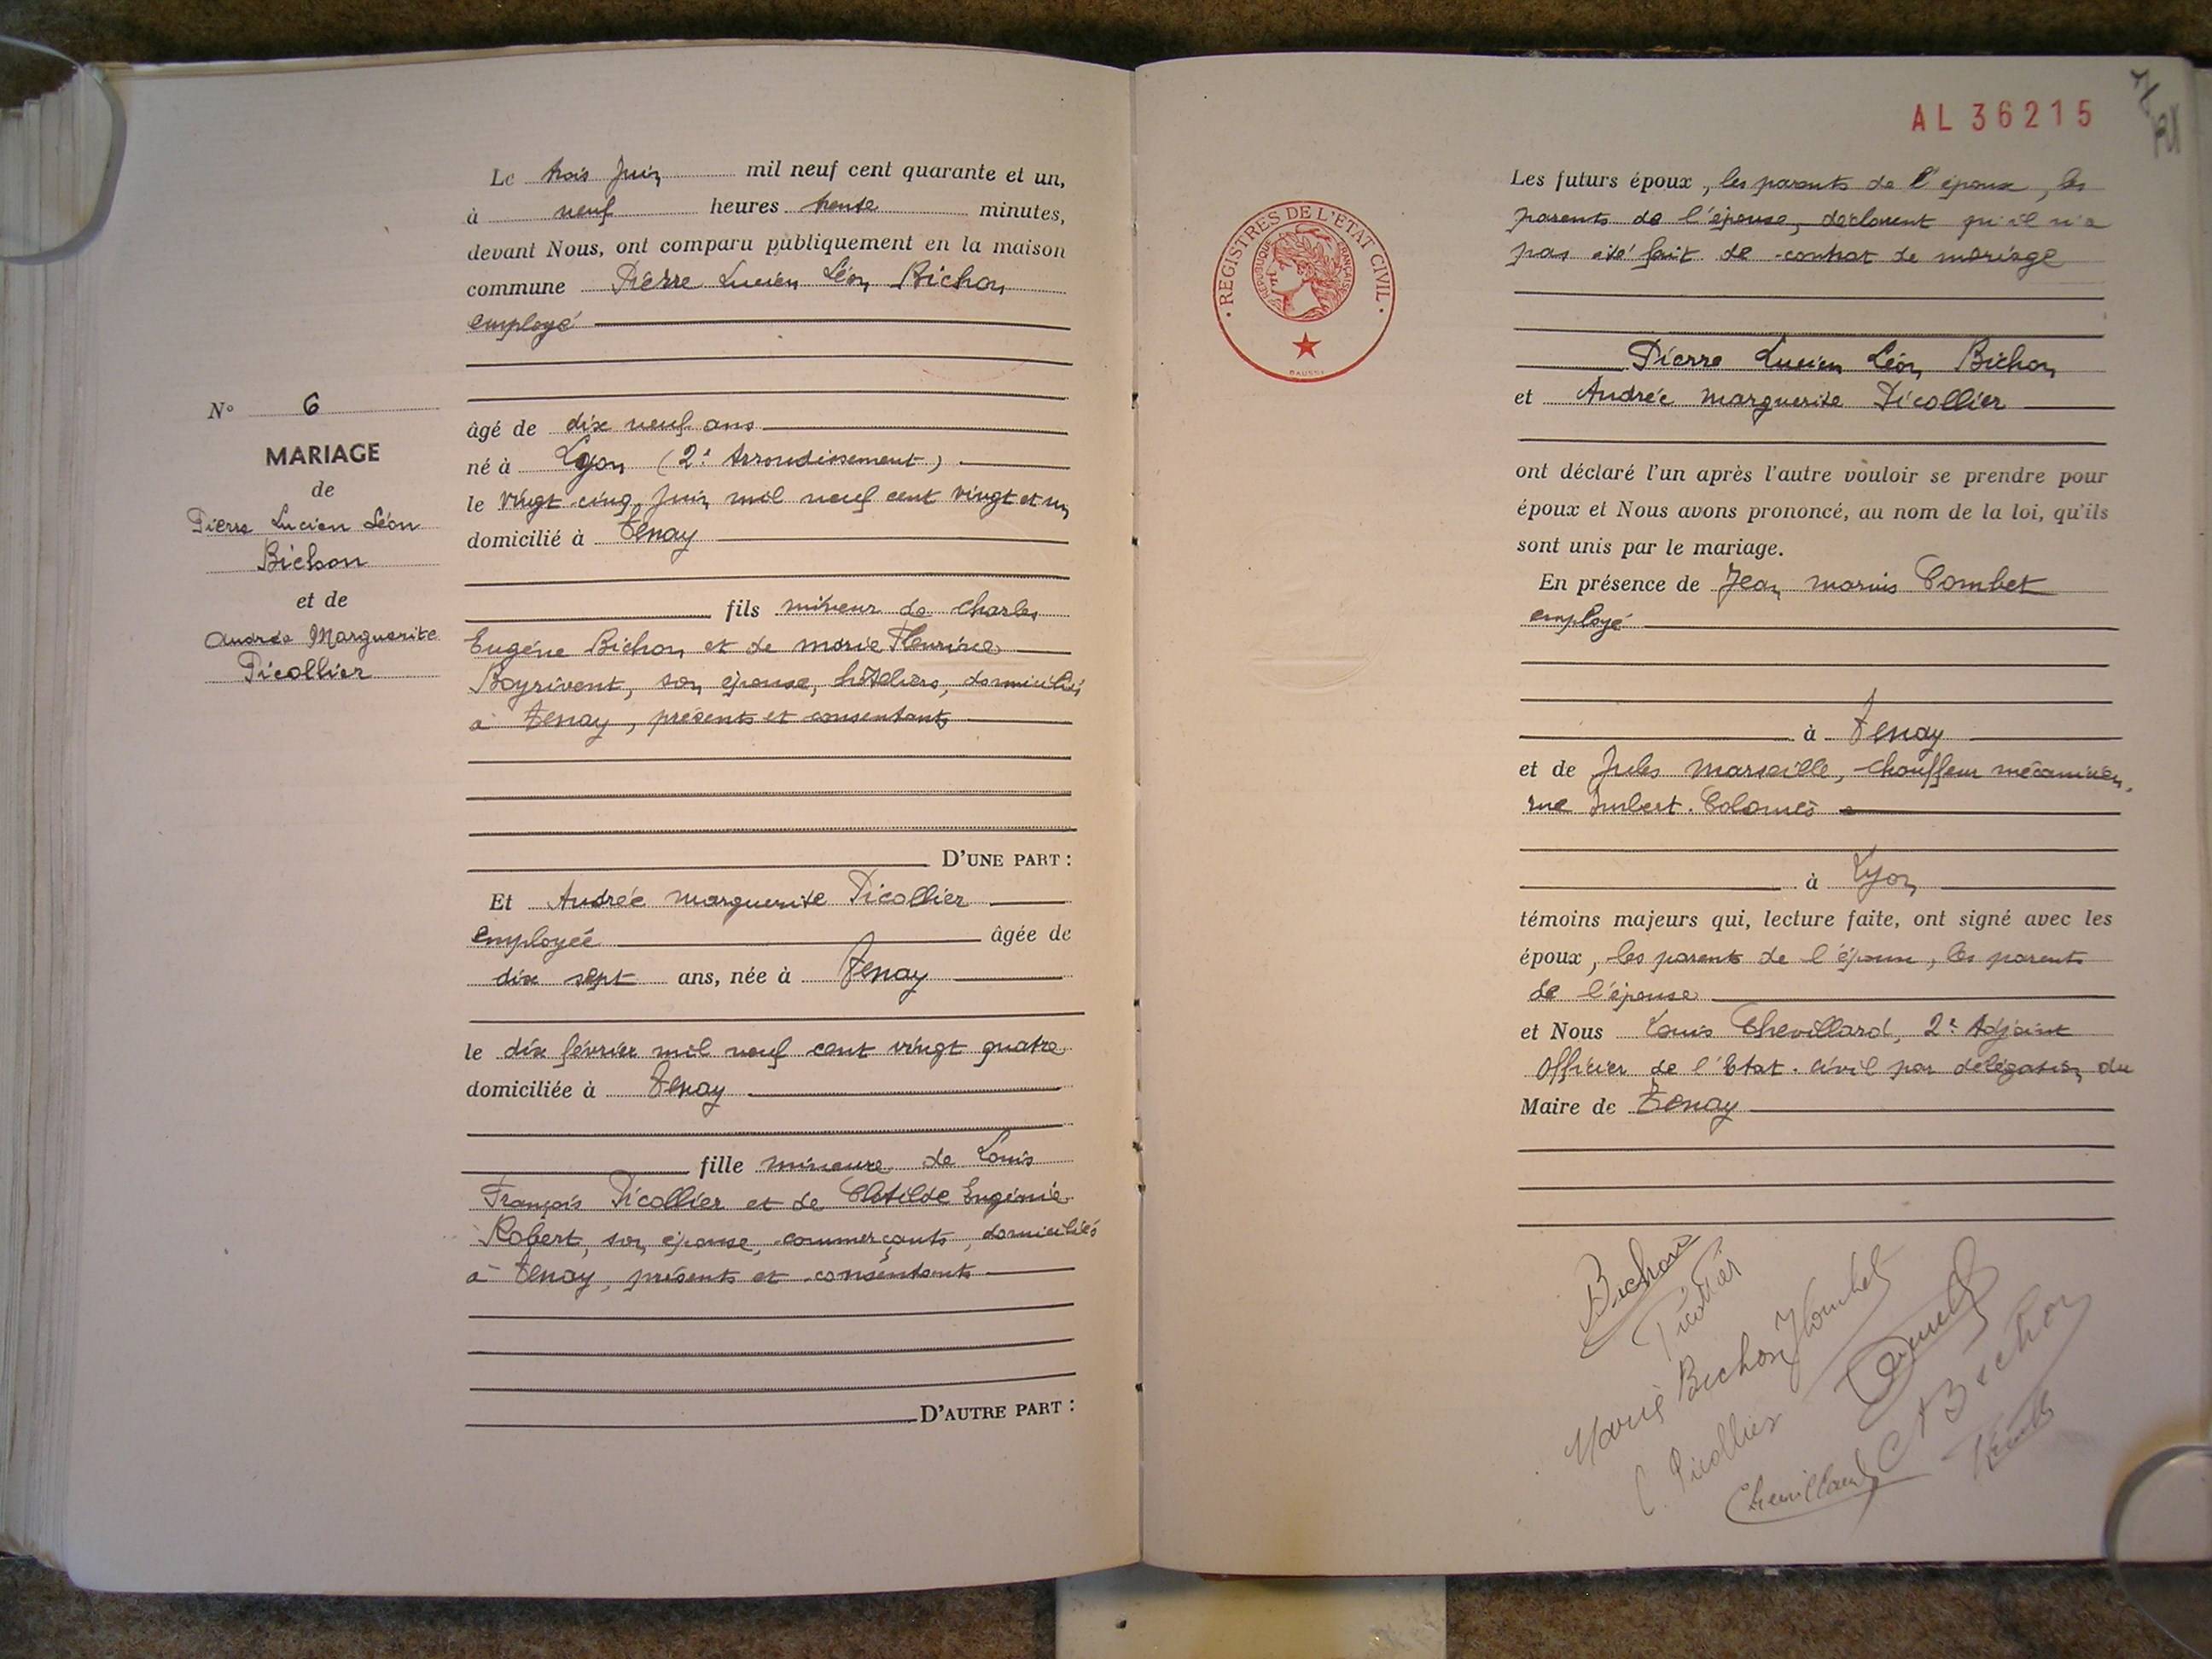 N° 6
MARIAGE
de
Pierre Lucien Léon
Bichon
et de
Andrée Marguerite
Picollier
Le trois Juin mil neuf cent quarante et un,
à neuf heures trente minutes,
devant Nous, ont comparu publiquement en la maison
commune Pierre Lucien Léon Bichon
employé
âgé de dix neuf ans
né à Lyon (2e Arrondissement)
le vingt-cinq Juin mil neuf cent vingt et un
domicilié à Tenay
fils mineur de Charles
Eugène Bichon et de Marie Fleurine
Boyrivent, son épouse, hôteliers, domiciliés
à Tenay, présents et consentants
D'UNE PART :
Et Andrée Marguerite Picollier
employée âgée de
dix sept ans, née à Tenay
le dix février mil neuf cent vingt quatre
domiciliée à Tenay
fille mineure de Louis
François Picollier et de Clotilde Eugénie
Robert, son épouse, commerçants, domiciliés
à Tenay, présents et consentants
D'AUTRE PART :
AL 36215
REGISTRES DE L'ÉTAT CIVIL
RÉPUBLIQUE FRANÇAISE
Les futurs époux, les parents de l'époux, les
parents de l'épouse, déclarent qu'il n'a
pas été fait de contrat de mariage
Pierre Lucien Léon Bichon
et Andrée Marguerite Picollier
ont déclaré l'un après l'autre vouloir se prendre pour
époux et Nous avons prononcé, au nom de la loi, qu'ils
sont unis par le mariage.
En présence de Jean Marius Combet
employé
à Tenay
et de Jules Marseille, chauffeur mécanicien,
rue Imbert-Colomès
à Lyon
témoins majeurs qui, lecture faite, ont signé avec les
époux, les parents de l'époux, les parents
de l'épouse
et Nous Louis Chevillard, 2e Adjoint
Officier de l'Etat-civil par délégation du
Maire de Tenay
Bichon
Picollier
Marie Bichon
C. Picollier
Bichon
Chevillard